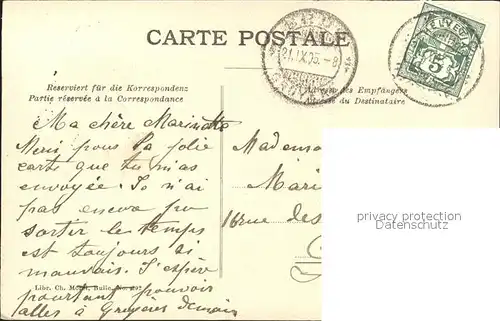 CARTE POSTALE
HELVETIA
5
21.IX.05.-8
Reserviert für die Korrespondenz
Partie réservée à la Correspondance
Adresse des Empfängers
Adresse du Destinataire
Ma chère Marinette
Merci pour ta jolie
carte que tu m'as
envoyée. Je n'ai
pas encore pu
sortir le temps
est toujours si
mauvais. J'espère
pourtant pouvoir
aller à Gruyères demain
Madem
Mari
16 rue des
privacy protection
Datenschutz
Libr. Ch. Bulle. No.